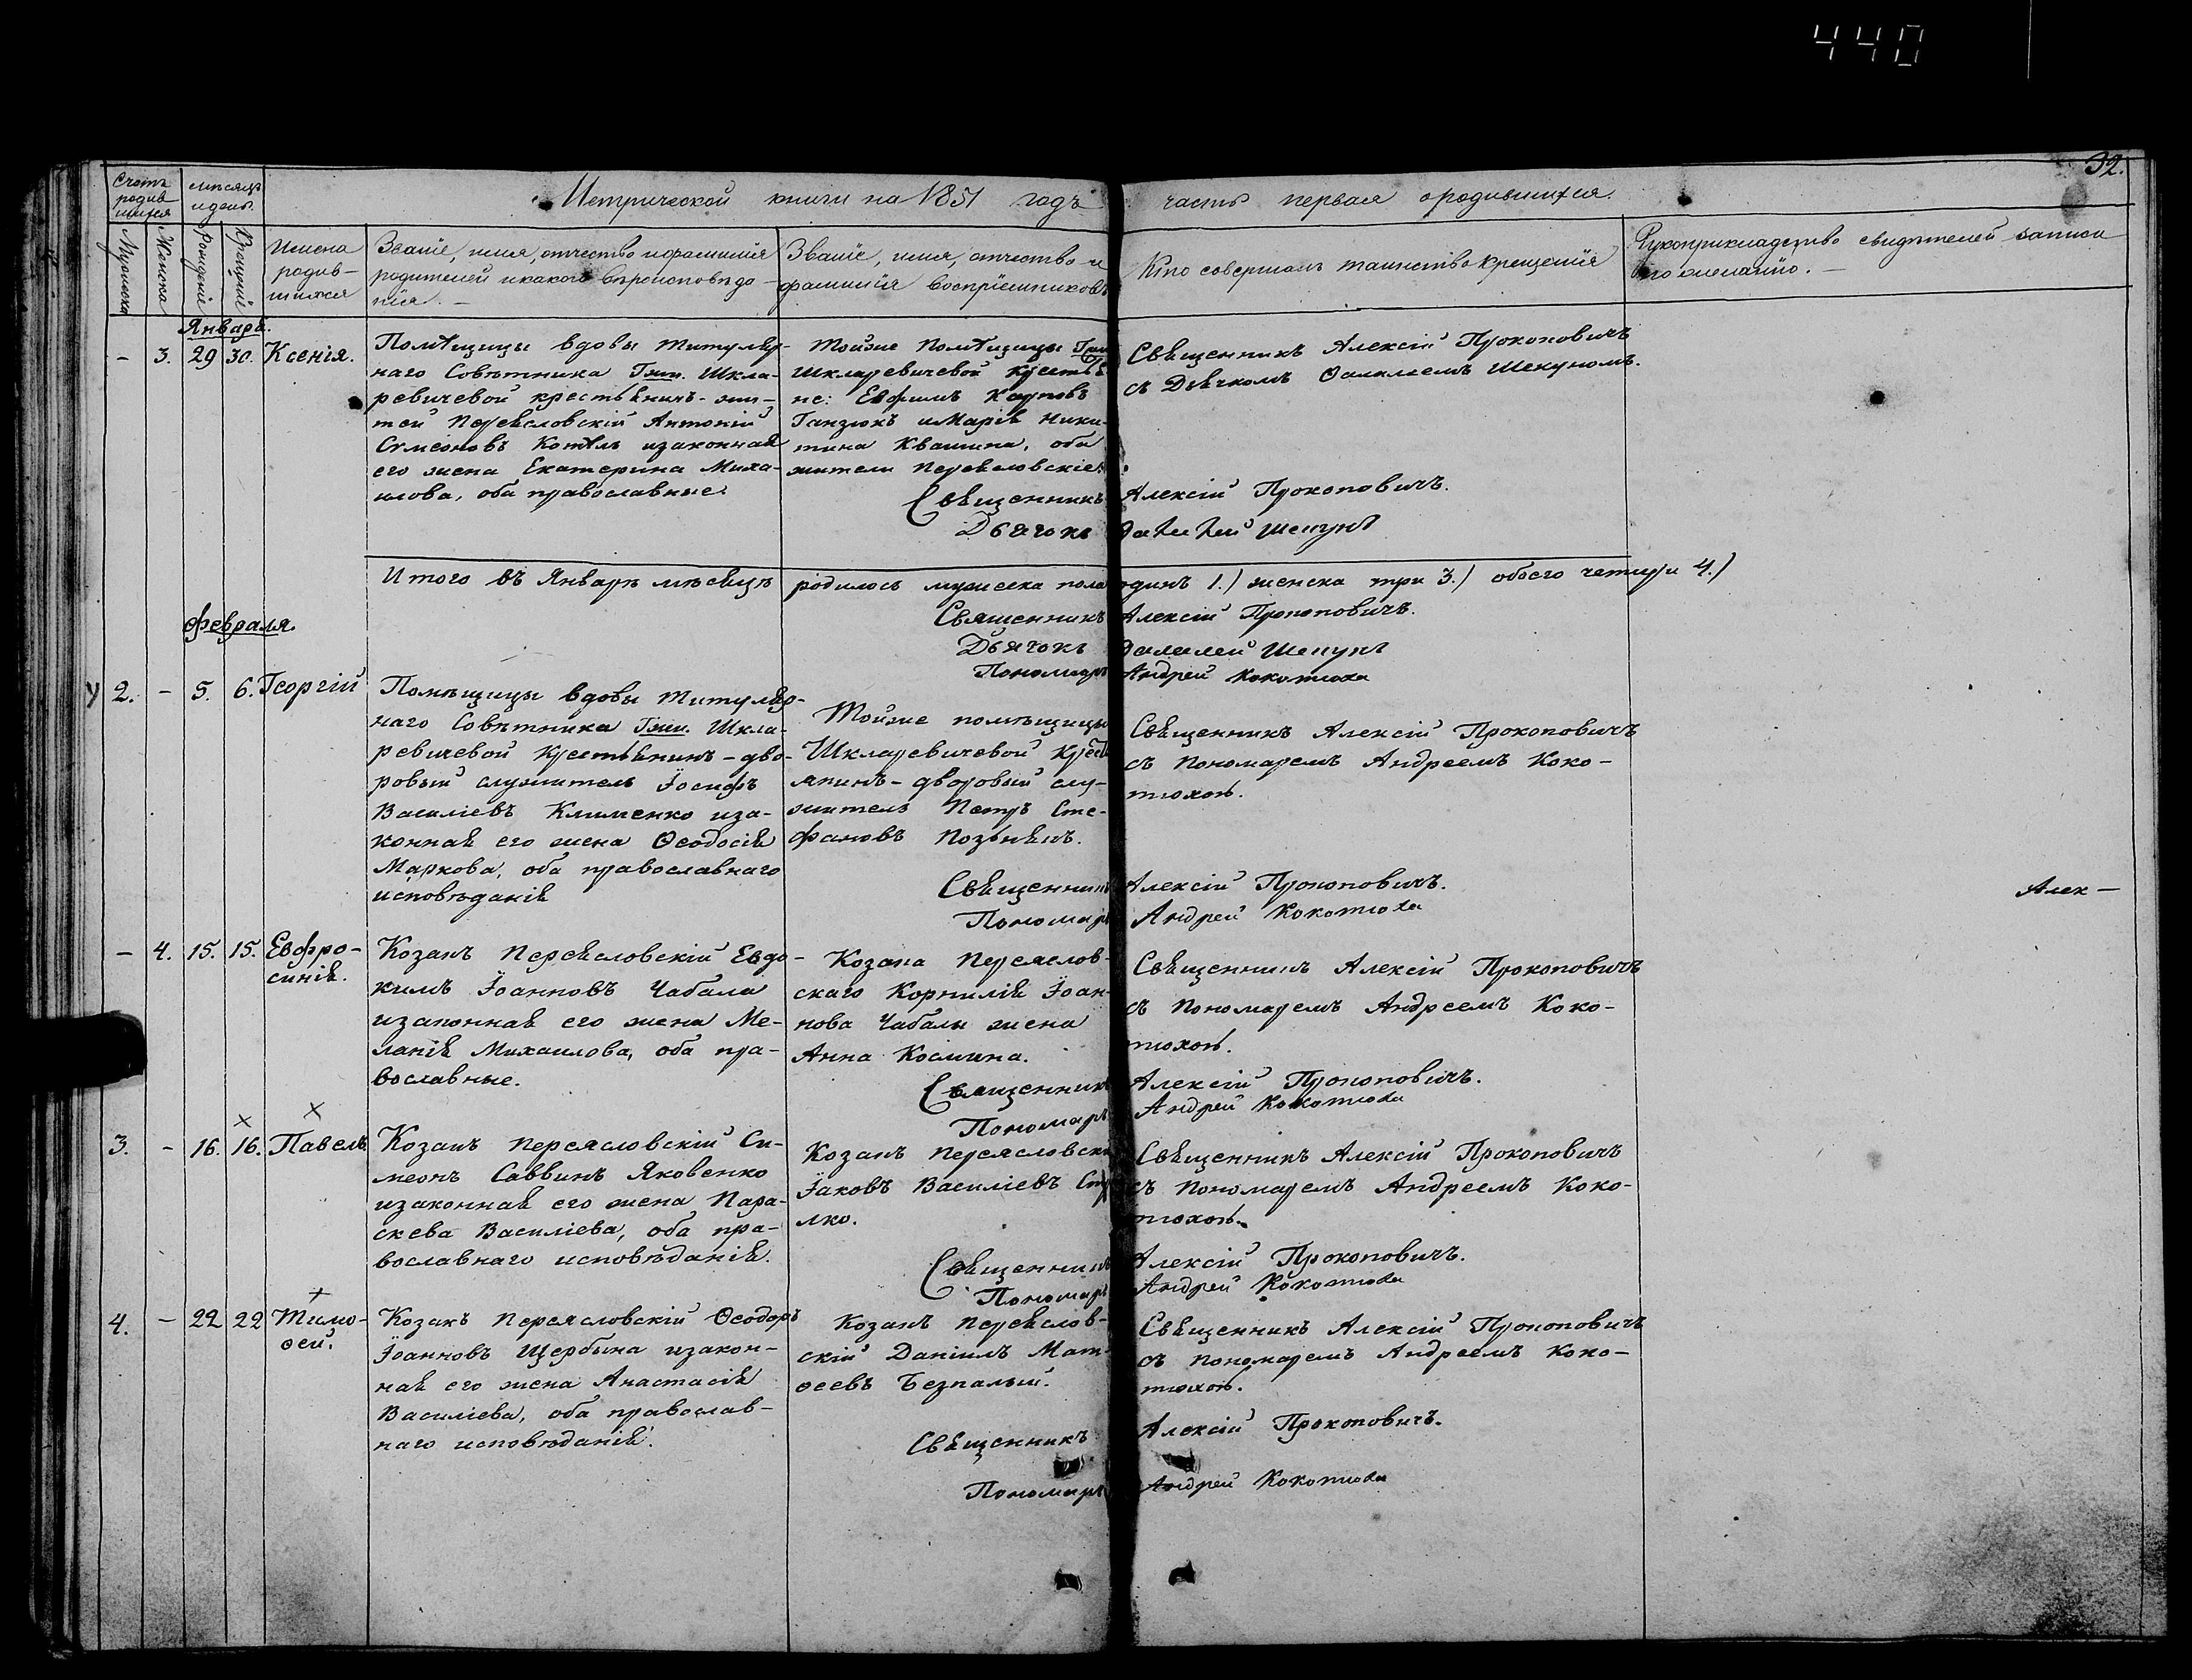 440
32.
Счетъ родившихся
мѣсяцъ и день.
Метрической книги на 1851 годъ часть первая о родившихся.
Мужеска
Женска
Рожденія
Крещенія
Имена
родив-
шихся
Званіе, имя, отчество и фамилія
родителей и какого вѣроисповѣда-
нія. -
Званіе, имя, отчество и
фамилія воспріемниковъ
Кто совершалъ таинство крещенія
Рукоприкладство свидѣтелей записи
по желанію. -
Январь.
- 3. 29 30. Ксенія.
Помѣщицы вдовы титуляр-
наго Совѣтника Гжи. Шкля-
ревичевой крестьянинъ-жи-
тель Переясловскій Антоній
Сѵмеоновъ Котъ изаконная
его жена Екатерина Миха-
илова, оба православные.
Тойже помѣщицы Гжи
Шкляревичевой крестья
не: Евфимъ Карповъ
Ганзюкъ и Марія Ники-
тина Квашина, оба
жители Переясловскіе.
Священникъ Алексій Прокоповичъ
съ Дьячкомъ Фалалеемъ Шекуномъ.
Священникъ Алексій Прокоповичъ.
Дьячокъ Фалалей Шекунъ
Итого въ Январѣ мѣсяцѣ родилось мужеска пола одинъ 1.) женска три 3.) обоего четыри 4.)
Священникъ Алексій Прокоповичъ.
Дьячокъ Фалалей Шекунъ
Пономарь Андрей Кокотюха
Февраля.
у 2. - 5. 6. Георгій
Помѣщицы вдовы титуляр-
наго Совѣтника Гжи. Шкля-
ревичевой Крестьянинъ-дво-
ровый служитель Іосифъ
Василіевъ Клименко иза-
конная его жена Ѳеодосія
Маркова, оба православнаго
исповѣданія
Тойже помѣщицы
Шкляревичевой Кресть
янинъ-дворовый слу-
житель Петръ Сте-
фановъ Позьнякъ.
Священникъ Алексій Прокоповичъ
съ Пономаремъ Андреемъ Коко-
тюхою.
Священникъ Алексій Прокоповичъ.
Пономарь Андрей Кокотюха
Алек-
- 4. 15. 15. Евфро-
синія.
Козакъ Переясловскій Евдо-
кимъ Іоанновъ Чабала
изаконная его жена Ме-
ланія Михаилова, оба пра-
вославные.
Козака Переяслов-
скаго Корнилія Іоан-
нова Чабалы жена
Анна Космина.
Священникъ Алексій Прокоповичъ
съ Пономаремъ Андреемъ Коко-
тюхою.
Священникъ Алексій Прокоповичъ.
Пономарь Андрей Кокотюха
3. - 16. 16. Павелъ
Козакъ Переясловскій Си-
меонъ Саввинъ Яковенко
изаконная его жена Пара-
скева Василіева, оба пра-
вославнаго исповѣданія.
Козакъ Переясловскі
Іаковъ Василіевъ
лко.
Священникъ Алексій Прокоповичъ
съ Пономаремъ Андреемъ Коко-
тюхою.
Священникъ Алексій Прокоповичъ.
Пономарь Андрей Кокотюха
4. - 22 22 Тимо-
ѳей.
Козакъ Переясловскій Ѳеодоръ
Іоанновъ Щербына изакон-
ная его жена Анастасія
Василіева, оба православ-
наго исповѣданія.
Козакъ Переяслов-
скій Даніилъ Мат-
ѳеевъ Безпалый.
Священникъ Алексій Прокоповичъ
съ Пономаремъ Андреемъ Коко-
тюхою.
Священникъ Алексій Прокоповичъ.
Пономарь Андрей Кокотюха